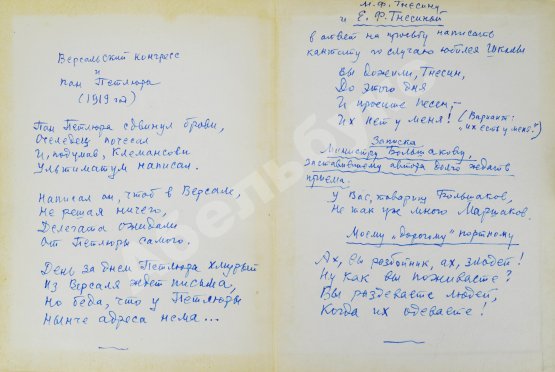 Версальский конгресс
и
пан Петлюра
(1919 год)
Пан Петлюра сдвинул брови,
Оселедец почесал
И, подумав, Клемансови
Ультиматум написал.
Написал он, чтоб в Версале,
Не решая ничего,
Делегата ожидали
От Петлюры самого.
День за днем Петлюра хмурый
Из Версаля ждет письма,
Но беда, что у Петлюры
Нынче адреса нема...
М.Ф. Гнесину
и Е.Ф. Гнесиной
в ответ на просьбу написать
кантату по случаю юбилея Школы
Вы дожили, Гнесин,
До этого дня
И просите песен,-
Их нет у меня! (Варианты:
"их есть у меня!")
Записка
Министру Большакову,
заставившему автора долго ждать
приема.
У Вас, товарищ Большаков,
Не так уж много Маршаков.
Моему "дорогому" портному
Ах, вы разбойник, ах, злодей!
Ну как вы поживаете?
Вы раздеваете людей,
Когда их одеваете!